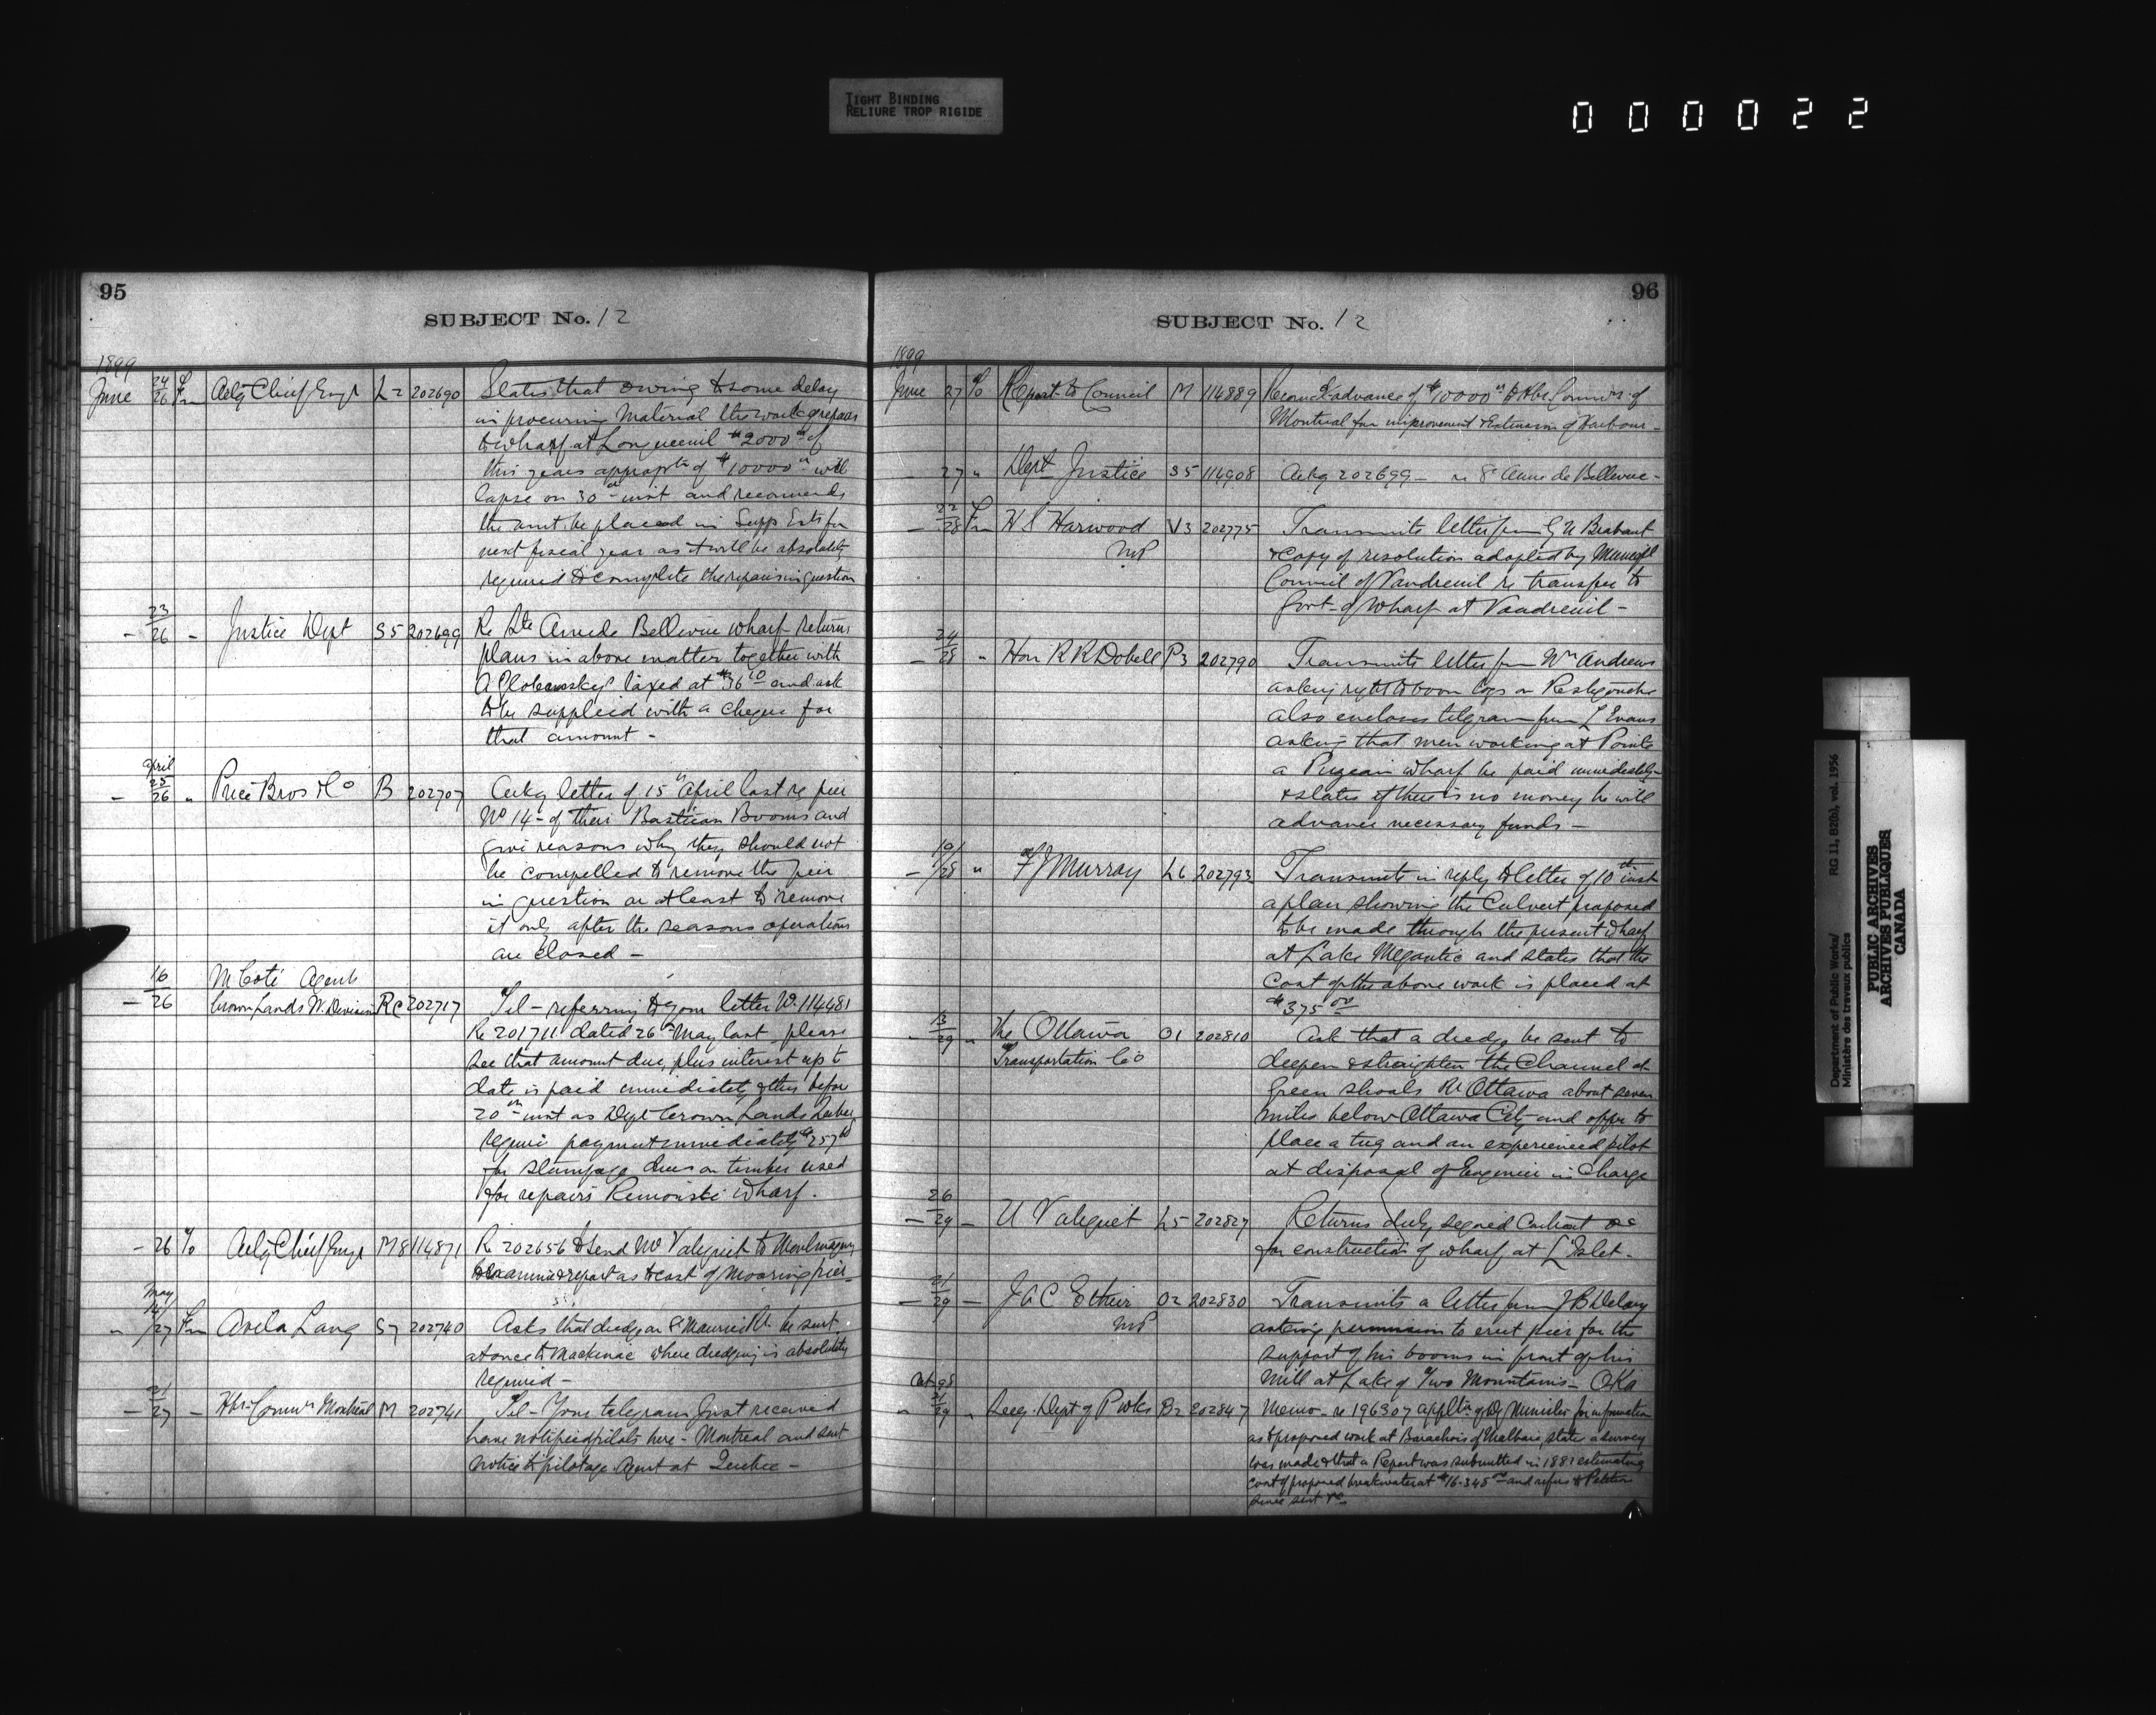 TIGHT BINDING
RELIURE TROP RIGIDE
000022
95
SUBJECT No. 12
1899
June 24/26 Fm Actg Chief Engr L2 202690 States that owing to some delay
in procuring material the work of repairs
to wharf at Longueuil $2000 of
this years approptn of $10000 will
lapse on 30 inst and recomends
the amt be placed in Supp Ests for
next fiscal year as it will be absolutely
required to complete the repairs in question
- 23/26 - Justice Dept S5 202699 Re Ste Anne de Bellevue wharf returns
plans in above matter together with
taxed at $36 and ask
to be supplied with a cheque for
that amount -
- April 25/26 " Price Bros & Co B 202707 Ackg letter of 15th April last re pier
No 14 - of their Bastican Booms and
give reasons why they should not
be compelled to remove the pier
in question or at least to remove
it only after the seasons operations
are closed -
16 M Coté Agent
- 26 Crown Lands W. Division Rc 202717 Tel - referring to your letter No. 114481
Re 201711 dated 26th May last please
see that amount due, plus interest up to
date is paid immediately & this before
20th inst as Dept Crown Lands Quebec
require payment immediately $257
for stumpage dues on timber used
for repairs Rimouski wharf.
- 26 To Actg Chief Engr M8 114871 Re 202656 to send Mr Valiquet to Montmagny
to examine & report as to cost of mooring pier -
" May 14/27 Fm Avila Lang S7 202740 Asks that dredge on St Maurice Rr be sent
at once to Mackinac where dredging is absolutely
required -
- 21/27 - Hbr Commrs Montreal M 202741 Tel - Your telegram just received
have notified pilots here - Montreal and sent
notice to pilotage Agent at Quebec -
96
SUBJECT No. 12
1899
June 27 To Report to Council M 114889 Recomds advance of $10000 to Hbr Commrs of
Montreal for improvement & Extension of Harbour -
- 27 " Dept Justice S5 114908 Ackg 202699 - re Ste Anne de Bellevue -
- 22/28 Fm H S Harwood V3 202775 Transmits letter from G N Brabant
MP & copy of resolution adopted by Municipl
Council of Vaudreuil re transfer to
Govt - of Wharf at Vaudreuil -
- 24/28 " Hon R R Dobell P3 202790 Transmits letter from Wm Andrews
asking right to boom logs on Restigouche
also encloses telgram from L Evans
asking that men working at Pointe
a Pizeau wharf be paid immediately -
& states if there is no money he will
advance necessary funds -
- 19/28 " F J Murray L6 202793 Transmits in reply to letter of 10th inst
a plan showing the Culvert proposed
to be made through the present wharf
at Lake Megantic and states that the
Cost of the above work is placed at
$375 00
- 13/29 " The Ottawa O1 202810 Ask that a dredge be sent to
Transportation Co deepen & straighten the Channel at
Green Shoals Rr Ottawa about seven
miles below Ottawa City and offer to
place a tug and an experienced pilot
at disposal of Engineer in Charge
- 26/29 - U Valiquet L5 202827 Returns duly signed Contract &c
for construction of wharf at L'Islet -
- 21/29 - J A C Ethier O2 202830 Transmits a letter from J B Delary
MP asking permission to erect pier for the
support of his booms in front of his
Mill at Lake of Two Mountains - OKa
" Oct 98 21/29 " Secy. Dept of P wks B2 202847 Memo - re 196307 appltn of Dy Minister for information
as to proposed work at Barachois of Malbaie, state a survey
was made & that a Report was submitted in 1882 estimating
Cost of proposed breakwater at $16.345 and refers to Petition
since sent &c
Department of Public Works/ RG 11, B2(b), vol. 1956
Ministère des travaux publics
PUBLIC ARCHIVES
ARCHIVES PUBLIQUES
CANADA